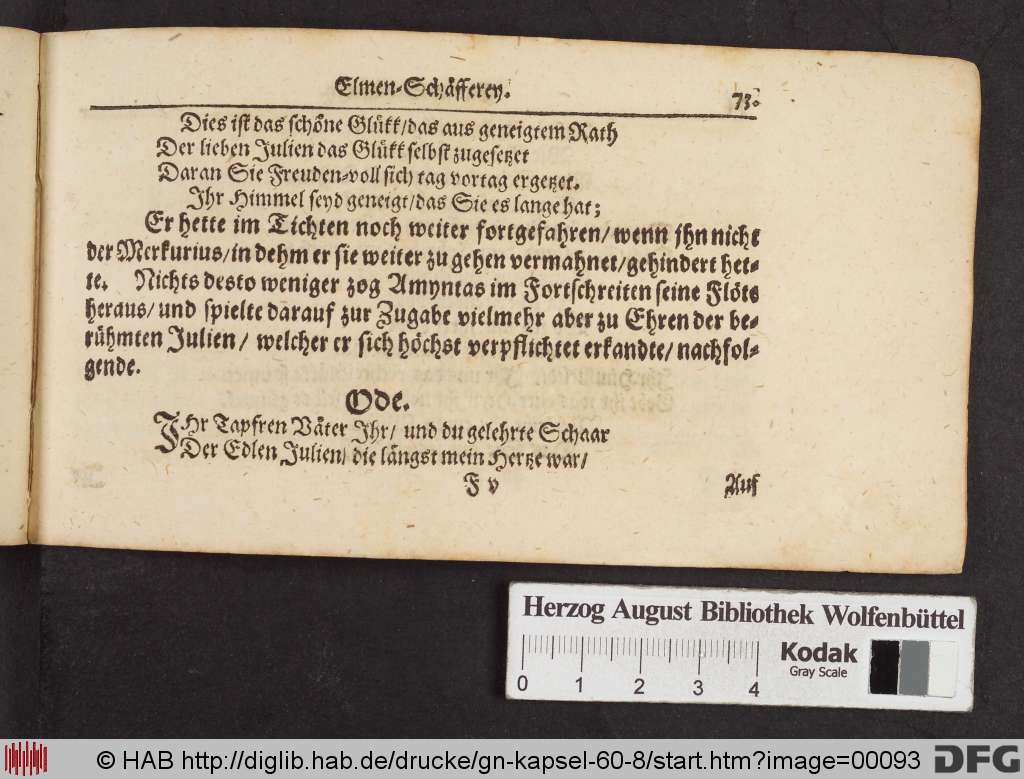 Elmen-Schäfferey.
73.
Dies ist das schöne Glükk/das aus geneigtem Rath
Der lieben Julien das Glükk selbst zugesetzet
Daran Sie Freuden-voll sich tag vor tag ergetzet.
Ihr Himmel seyd geneigt/das Sie es lange hat;
Er hette im Tichten noch weiter fortgefahren/wenn jhn nicht
der Merkurius/in dehm er sie weiter zu gehen vermahnet/gehindert het-
te. Nichts desto weniger zog Amyntas im Fortschreiten seine Flöte
heraus/und spielte darauf zur Zugabe vielmehr aber zu Ehren der be-
rühmten Julien/ welcher er sich höchst verpflichtet erkandte/nachfol-
gende.
Ode.
IHr Tapfren Väter Ihr/ und du gelehrte Schaar
Der Edlen Julien/ die längst mein Hertze war/
F v
Auf
Herzog August Bibliothek Wolfenbüttel
0 1 2 3 4
Kodak
Gray Scale
© HAB http://diglib.hab.de/drucke/gn-kapsel-60-8/start.htm?image=00093
DFG